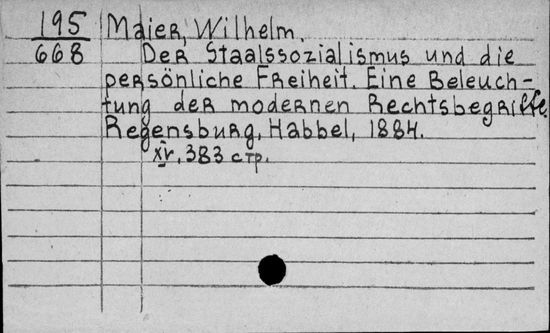 195 Maier, Wilhelm.
668 Der Staalssozialismus und die
persönliche Freiheit. Eine Beleuch-
tung der modernen Rechtsbegriffe.
Regensburg, Habbel, 1884.
XV, 383 стр.